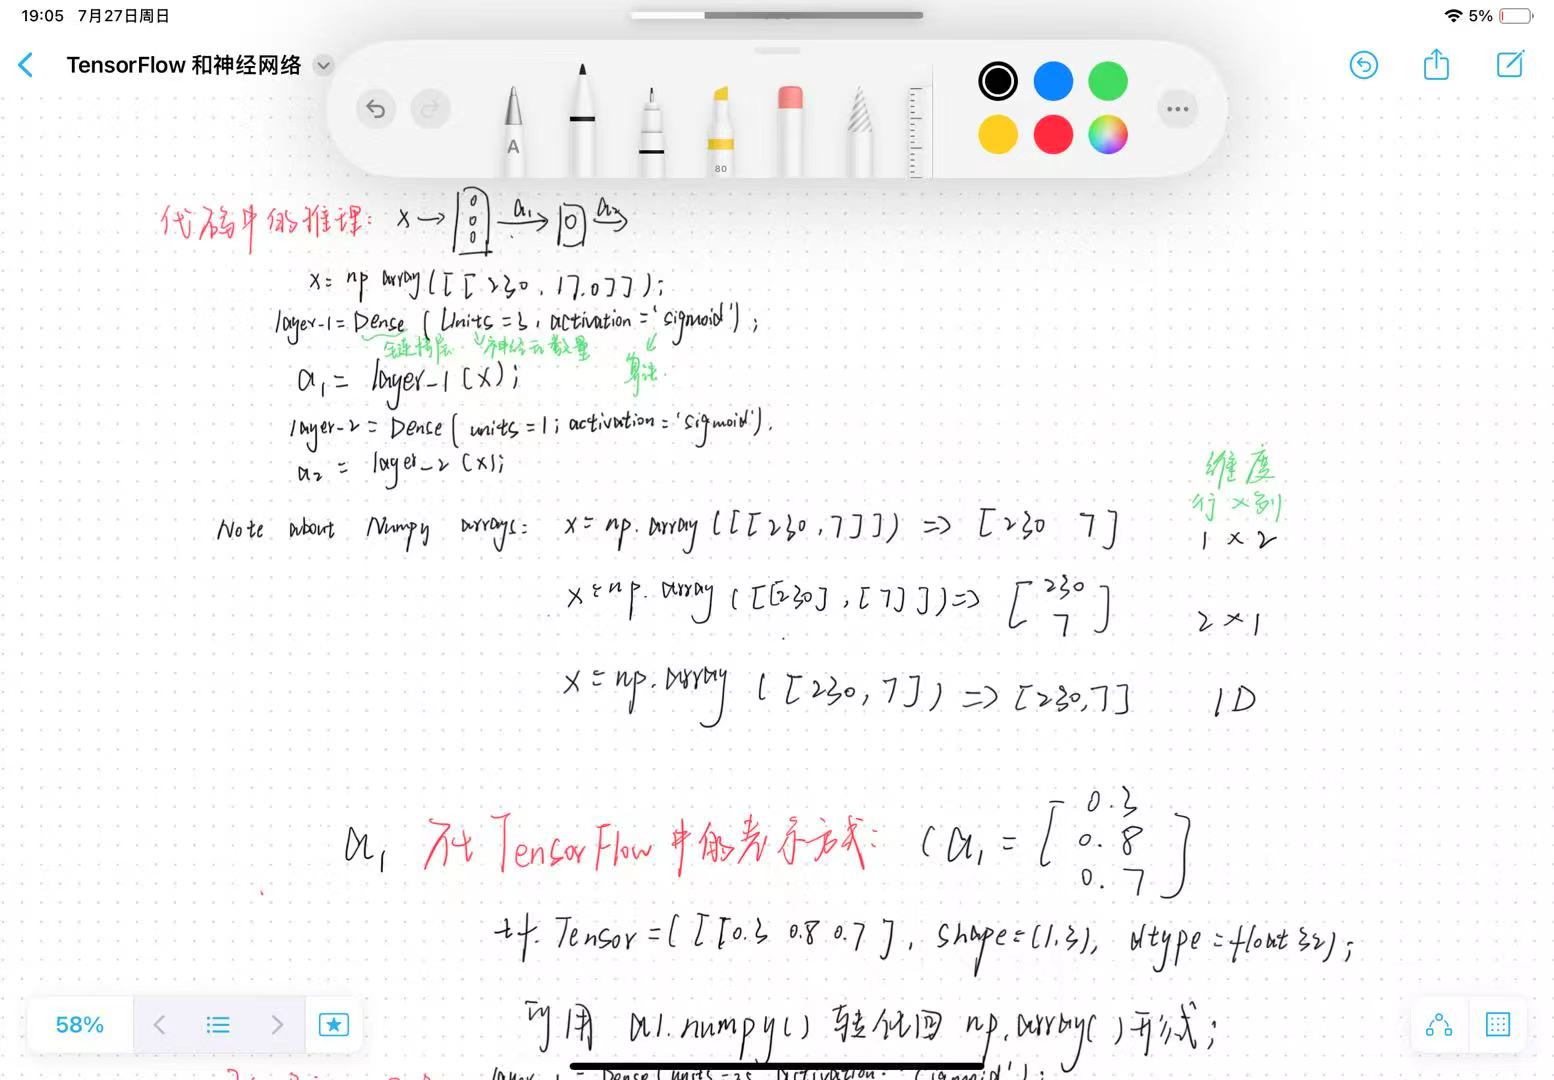 19:05 7月27日周日
5%
TensorFlow 和神经网络
A
80
代码中的推理: x → a₁ a₂
x = np array([[230, 17.0]]);
layer-1 = Dense (Units = 3, activation = 'sigmoid');
全连接层 神经元数量
算法.
a₁ = layer-1 (x);
layer-2 = Dense( units = 1; activation = 'sigmoid').
a₂ = layer-2 (x);
维度
行 × 列
Note about Numpy arrays: x = np. array ([[230, 7]]) => [230 7] 1 × 2
x = np. array ([[230], [7]]) => [230 7] 2 × 1
x = np. array ([230, 7]) => [230, 7] 1D
a₁ 在 TensorFlow 中的表示方式: (a₁ = [0.3 0.8 0.7]
tf. Tensor = ([[0.3 0.8 0.7], shape = (1.3), dtype = float 32);
可用 a1.numpy() 转化回 np.array() 形式;
58%